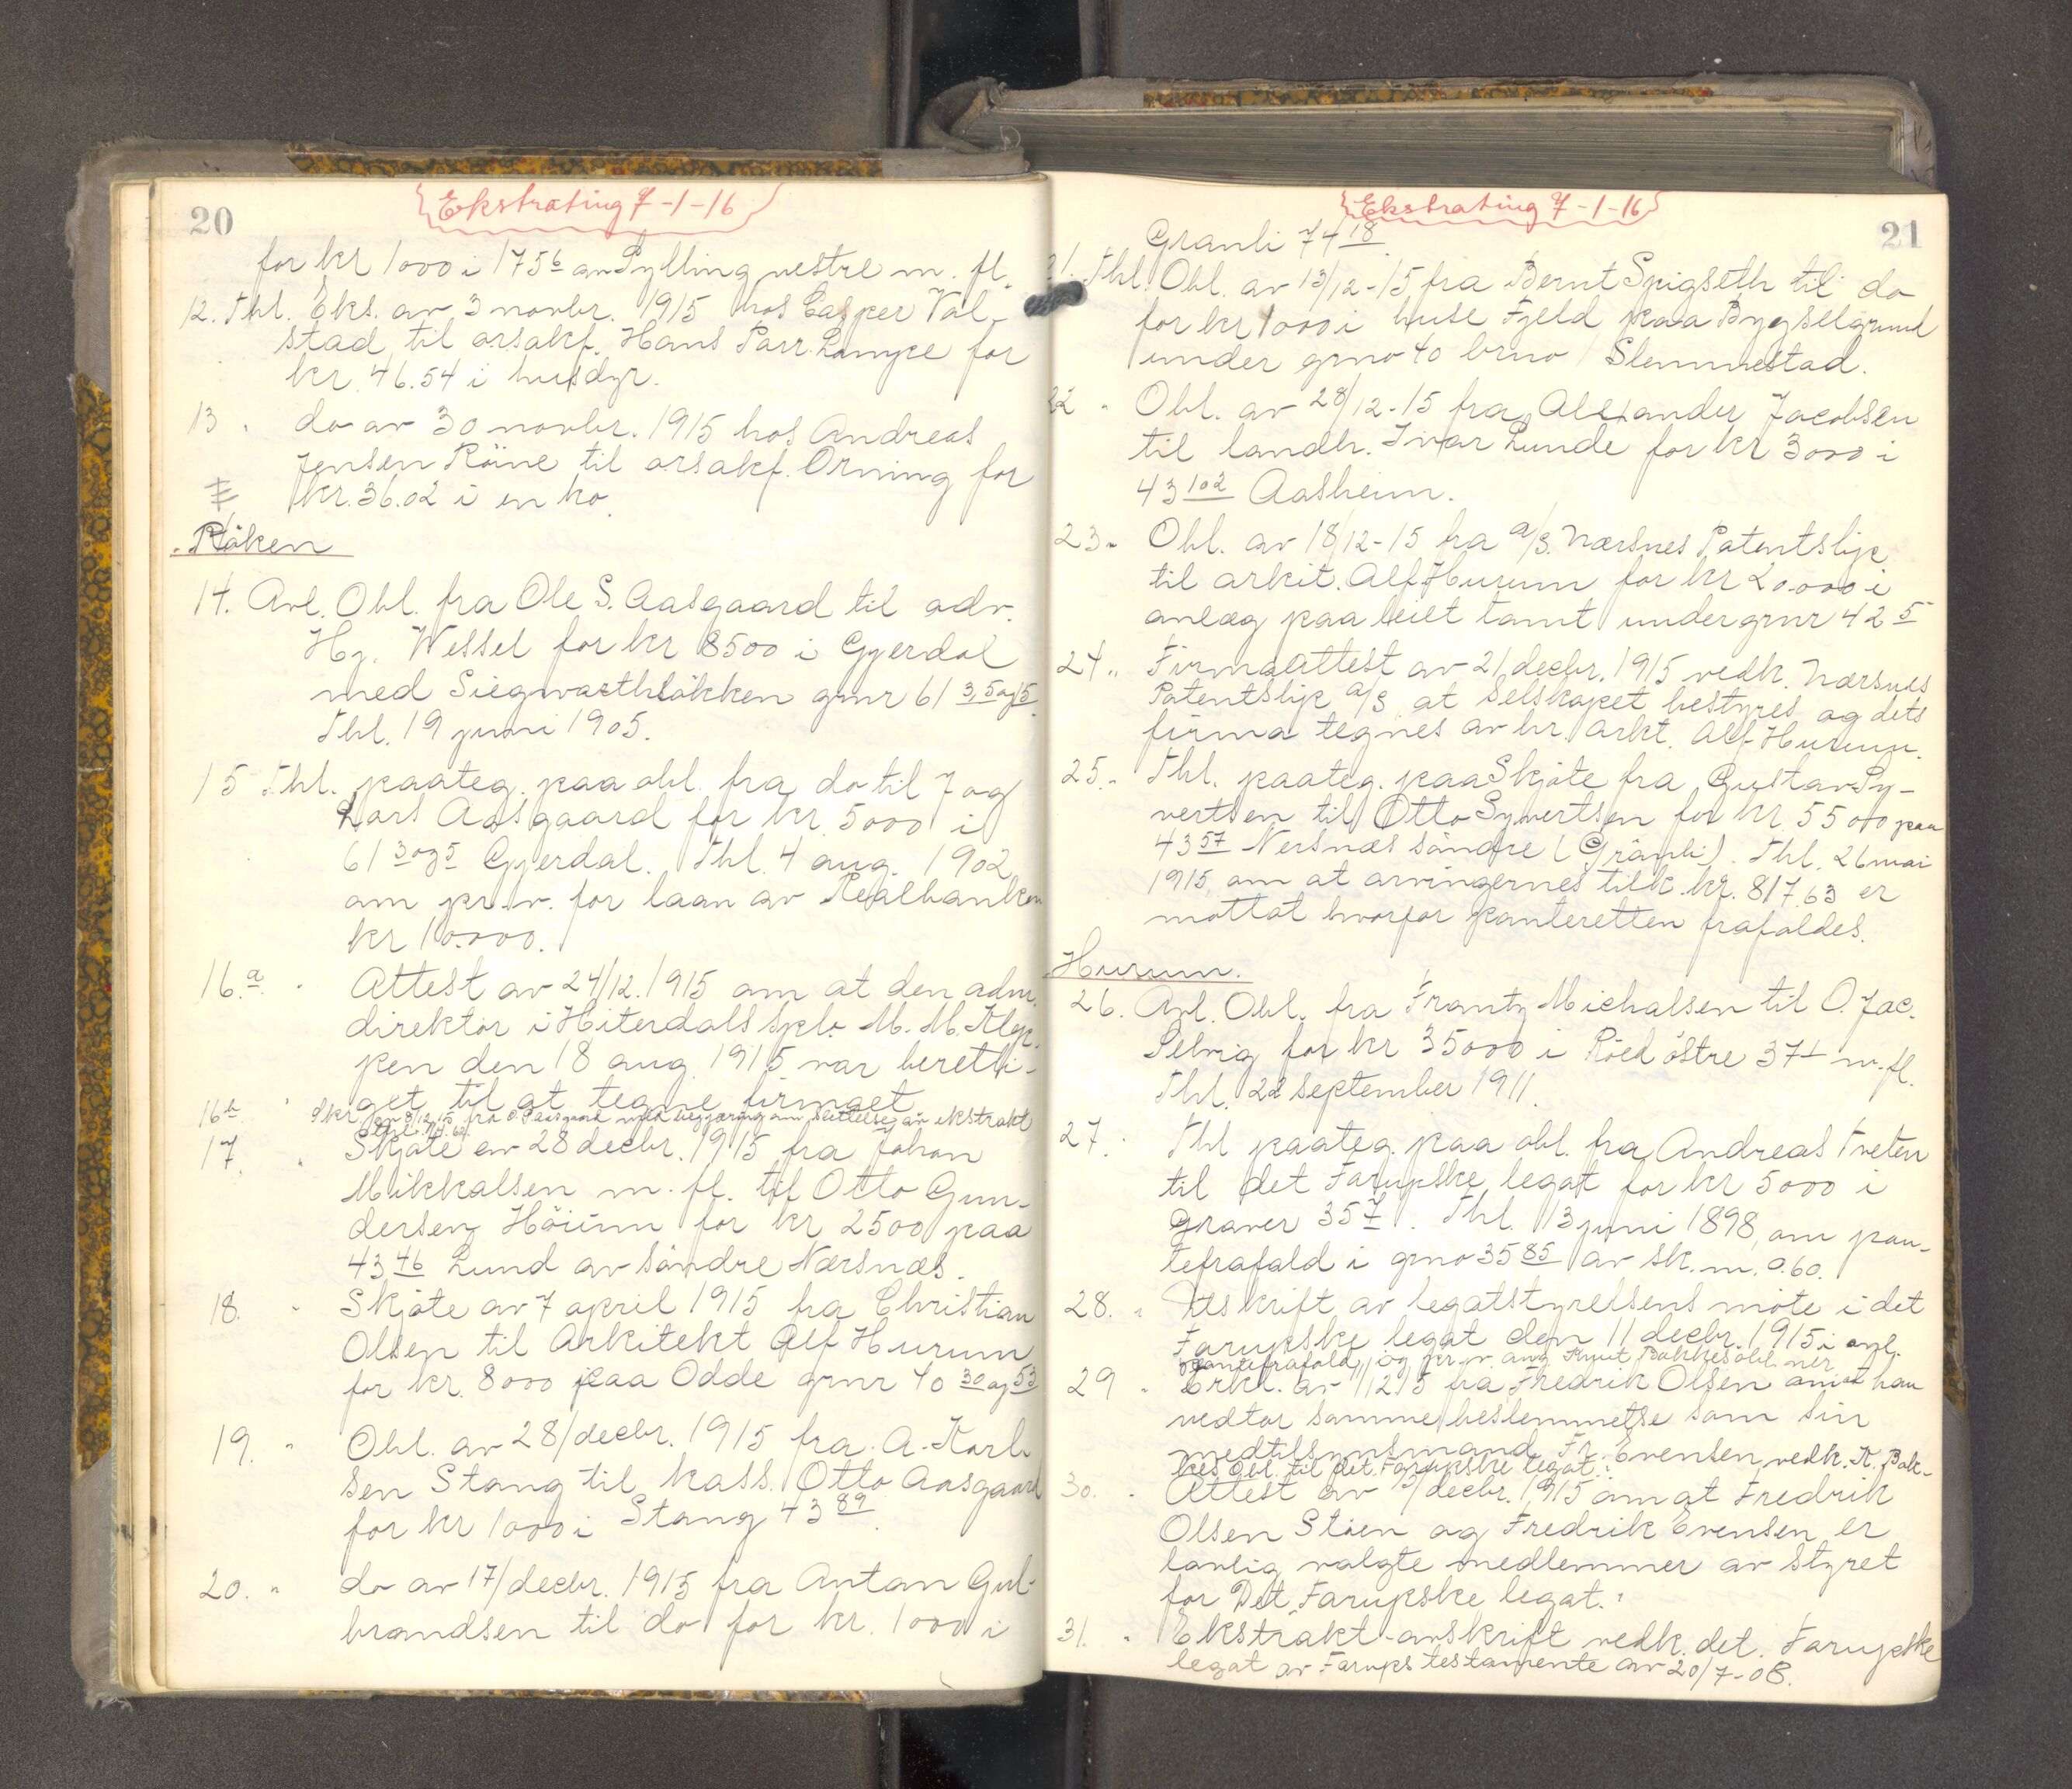 20
Ekstrating 7-1-16
for kr 1000 i 175 6 av Sylling vestre m. fl.
12. Thl. Eks. av 3 novbr. 1915 hos Casper Val-
stad til orsakf. Hans Parr for
kr. 46.54 i husdyr.
13 " do av 30 novbr. 1915 hos Andreas
Jensen Röine til orsakf. Orning for
kr. 36.02 i en ko.
Röken
14. Avl. Obl. fra Ole S. Aasgaard til adv.
Hj. Wessel for kr 8500 i Gjerdal
med Siegwarthlökken gnr 61 3, 5 og 15
Thl. 19 juni 1905.
15 Thl. paateg. paa obl. fra do til J og
Lars Aasgaard for kr. 5000 i
61 3 og 5 Gjerdal. Thl. 4 aug. 1902
om pr. v. for laan av Realbanken
kr 10.000.
16.a. " Attest av 24/12. 1915 om at den adm.
direktör i Hiterdals M. M.
pen den 18 aug. 1915 var beretti-
get til at tegne firmaet
16b " Skr. av 8/12.15 fra O. Aasgaard med begjæring om slettelse av ekstrakt
17. " Skjöte av 28 decbr. 1915 fra Johan
Mikkalsen m. fl. til Otto Gun-
dersen Höium for kr 2500 paa
43 46 Lund av söndre Nærsnæs.
18. " Skjöte av 7 april 1915 fra Christian
Olsen til Arkitekt Alf Hurum
for kr. 8000 paa Odde grnr 40 30 og 53
19. " Obl. av 28/decbr. 1915 fra A. Karl-
sen Stang til kass. Otto Aasgaard
for kr 1000 i Stang 43 89.
20. " do av 17/decbr. 1915 fra Anton Gul-
brandsen til do for kr. 1000 i
21
Ekstrating 7-1-16
Granli 74 18.
21. Thl. Obl. av 13/12-15 fra Bernt Spigseth til do
for kr 1000 i huse Fjeld paa Bygselgrund
under grno 40 brno 1 Slemmestad.
22 " Obl. av 28/12-15 fra Alexander Jacobsen
til landh. Ivar Lunde for kr 3000 i
43 102 Aasheim.
23 " Obl. av 18/12-15 fra a/s. Nærsnes Patentslip
til arkit. Alf Hurum for kr 20.000 i
anlæg paa leiet tomt under grnr 42 5
24 " Firmaattest av 21 decbr. 1915 vedk. Nærsnes
Patentslip a/s at selskapet bestyres og dets
firma tegnes av hr. Arkt. Alf Hurum.
25 " Thl. paateg. paa Skjöte fra Gustav Sy-
vertsen til Otto Syvertsen for kr. 5500 paa
43 57 Nersnæs söndre (Granli). Thl. 26 mai
1915, om at arvingernes tilk. kr. 817,63 er
mottat hvorfor panteretten frafaldes.
Hurum.
26. Avl. Obl. fra Frantz Michalsen til O. Jac.
Selvig for kr 35000 i Röed östre 37 1 m. fl.
Thl. 22 september 1911.
27. " Thl paateg. paa obl. fra Andreas Tveten
til det Farupske legat for kr 5000 i
Graver 35 7. Thl. 13 juni 1898, om pan-
tefrafald i grno 35 85 av sk. m. 0.60.
28. " Utskrift av legatstyrelsens möte i det
Farupske legat den 11 decbr. 1915 i anl.
pantefrafald og pr. v. ang Knut Bakkes obl.
29 " Erkl. av 11/12 15 fra Fredrik Olsen om at han
vedtar samme bestemmelse som sin
medtilsynsmand Fr. Evensen vedk. K. Bak-
kes Obl. til Det Farupske legat.
30. " Attest av 15/decbr. 1915 om at Fredrik
Olsen Stöen og Fredrik Evensen er
lovlig valgte medlemmer av styret
for Det Farupske legat.
31. " Ekstrakt-avskrift vedk. det Farupske
legat av Farups testamente av 20/7-08.